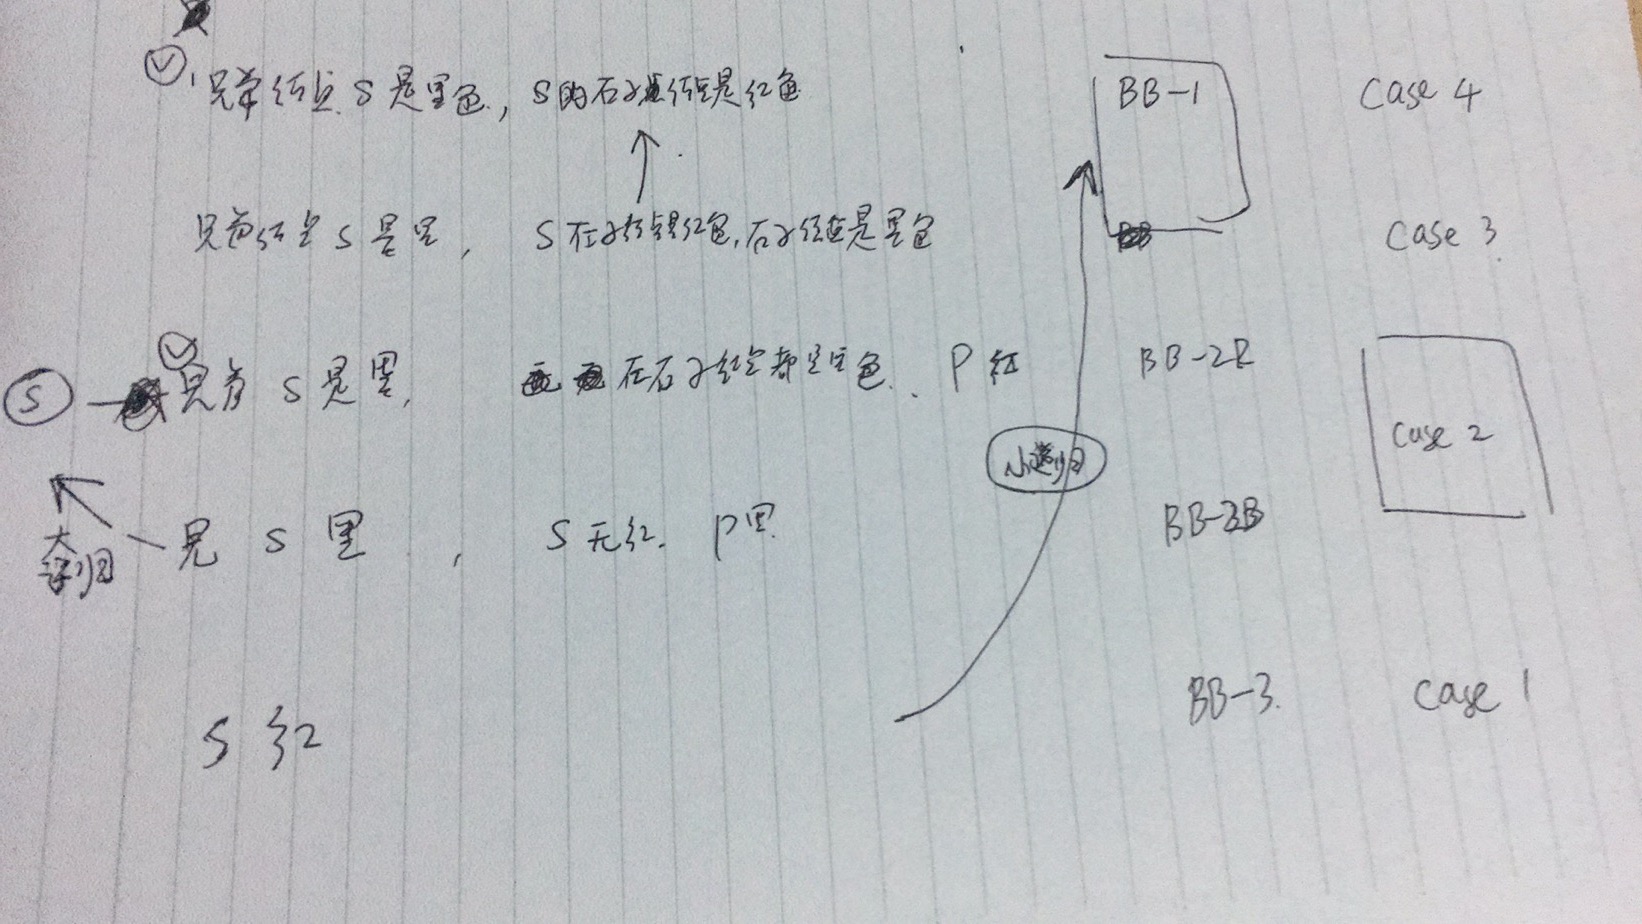 兄弟结点 S 是黑色, S的右子结点是红色 BB-1 Case 4
兄弟结点 S 是黑, S 左子结点是红色,右子结点是黑色 Case 3
S 兄弟 S 是黑, 左右子结点都是黑色. P 红 BB-2R
Case 2
小递归
大递归 兄 S 黑, S 无红. P黑 BB-2B
S 红 BB-3 Case 1